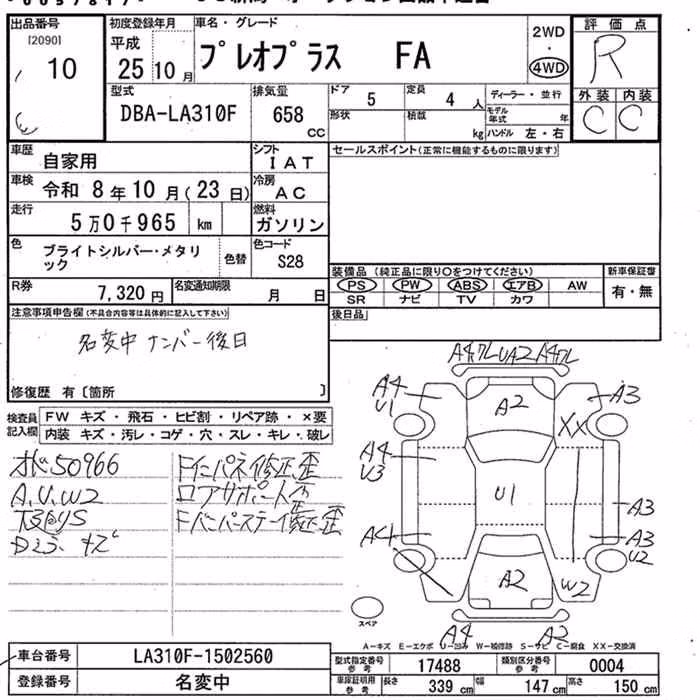 出品番号
[2090]
10
初度登録年月
平成
25 10 月
車名・グレード
プレオプラス FA
2WD
4WD
評価点
R
外装 内装
C C
型式
DBA-LA310F
排気量
658 CC
ドア 5
定員 4 人
形状
積載 kg
ディーラー・並行
モデル年式 年
ハンドル 左・右
車歴 自家用
シフト IAT
セールスポイント(正常に機能するものに限ります)
車検 令和 8 年 10 月(23 日)
冷房 AC
走行 5 万 0 千 965 km
燃料 ガソリン
色 ブライトシルバー・メタリック
色替
色コード S28
装備品(純正品に限り○をつけてください)
PS PW ABS エアB AW
SR ナビ TV カワ
新車保証書
有・無
R券 7,320 円
名変通知期限 月 日
後日品
注意事項申告欄(不具合内容等は具体的に記入して下さい)
名変中 ナンバー後日
修復歴 有〔箇所 〕
検査員記入欄
FW キズ・飛石・ヒビ割・リペア跡・×要
内装 キズ・汚レ・コゲ・穴・スレ・キレ・破レ
50966
A.U.W2
キズ
Fインパネ修正歪
ロアサポート歪
Fバンパーステー修正歪
A4 ワレ UA2 A4 ワレ
A4
U1
A2
A3
XX
A4
U3
U1
A3
A4
A3
U2
A2
W2
スペア
A2 A2
A-キズ E-エクボ U-凹み W-補修跡 S-サビ C-腐食 XX-交換済
車台番号 LA310F-1502560
登録番号 名変中
型式指定番号 参考 17488
類別区分番号 参考 0004
車庫証明用 参考
長さ 339 cm 幅 147 cm 高さ 150 cm